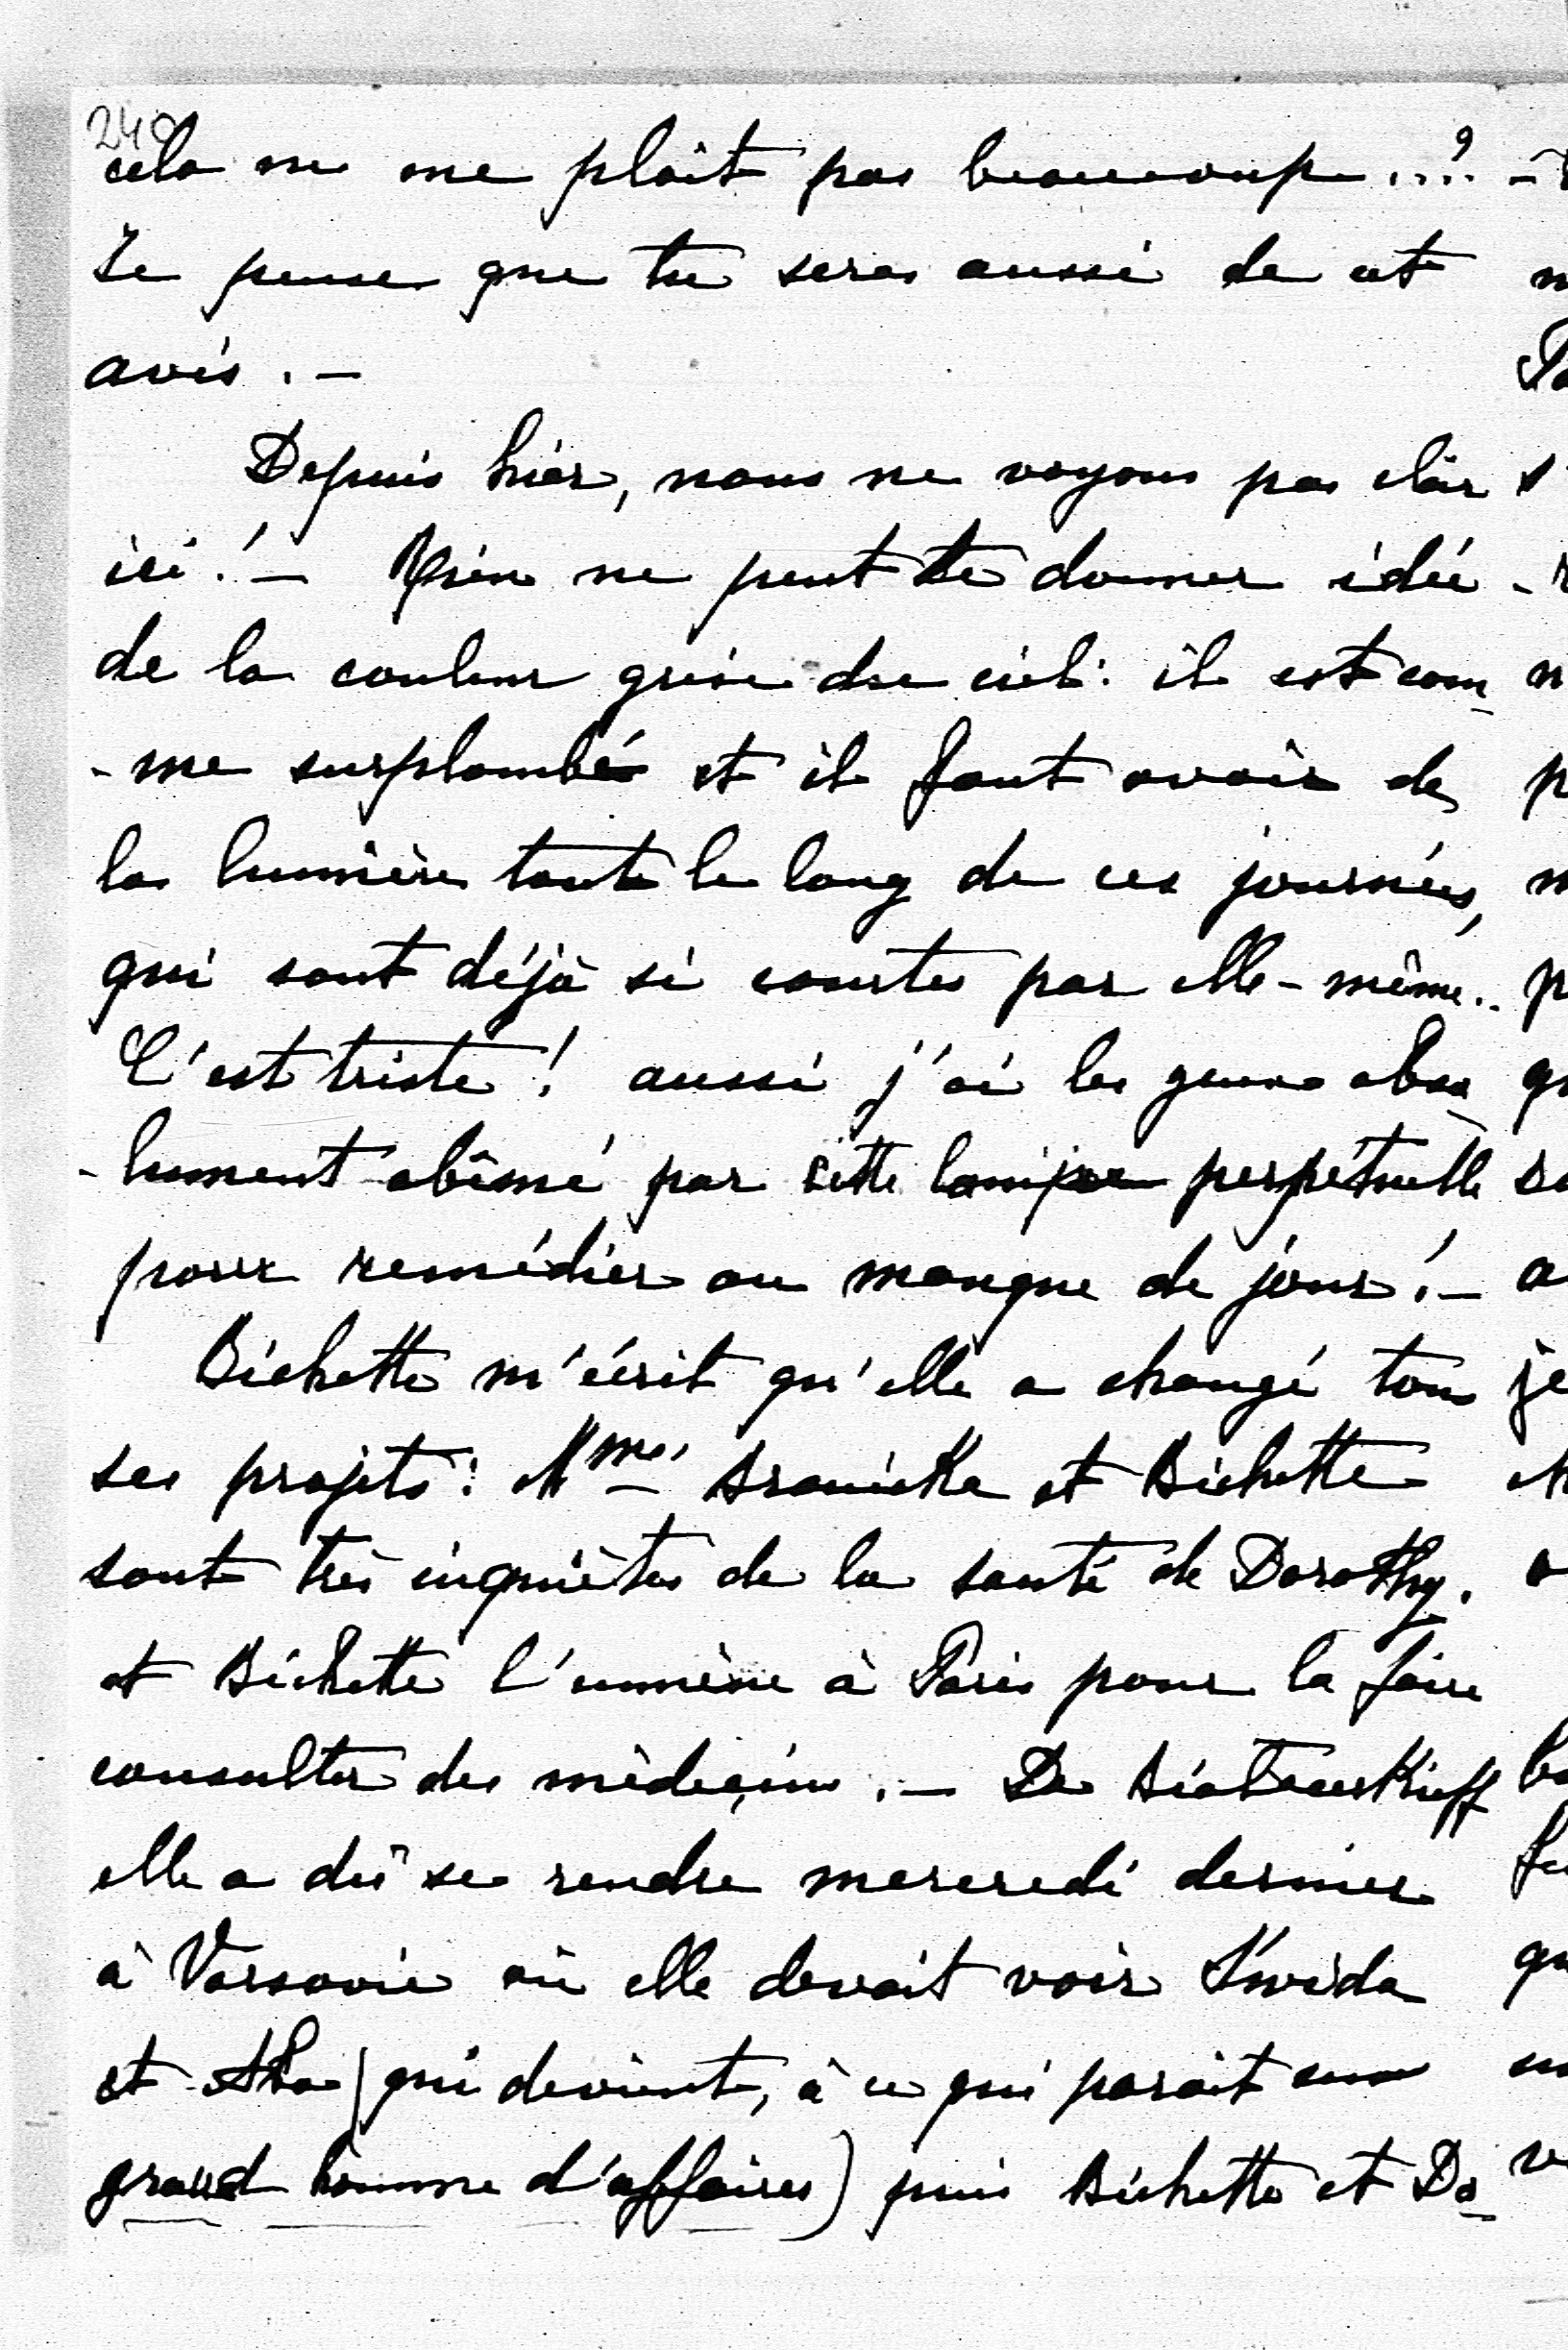 240
cela ne me plaît pas beaucoup...?
Je pense que tu seras aussi de cet
avis. —
Depuis hier, nous ne voyons pas clair
ici! — Rien ne peut te donner idée
de la couleur grise du ciel: il est com-
-me surplombé et il faut avoir de
la lumière tout le long de ces journées,
qui sont déjà si courtes par elle-même..
C'est triste! aussi j'ai les yeux abso-
-lument abîmé par cette lampe perpétuelle
pour remédier au manque de jour! —
Bichette m'écrit qu'elle a changé tous
ses projets: Mmes Branicka et Bichette
sont très inquiètes de la santé de Dorothy.
et Bichette l'emmène à Paris pour la faire
consulter des médecins. — De
elle a dû se rendre mercredi dernier
à Varsovie où elle devait voir
et (qui devient, à ce qui paraît un
grand homme d'affaires) puis Bichette et Do-